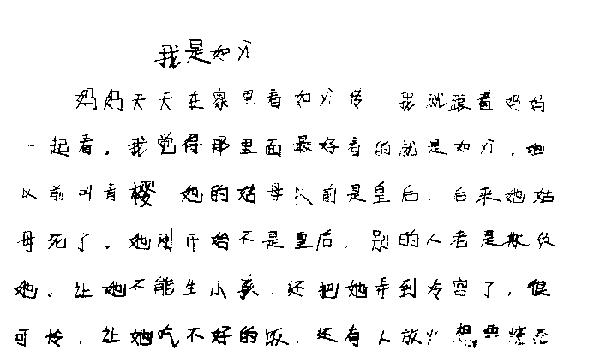 我是如介
妈妈天天在家里看如介传 我就跟着妈妈
一起看。我觉得那里面最好看的就是如介,她
以前叫青樱 她的姑母以前是皇后,后来她姑
母死了。她刚开始不是皇后,别的人老是欺负
她,让她不能生小孩,还把她弄到冷宫了,很
可怜,让她吃不好的饭,还有人放火想要烧死